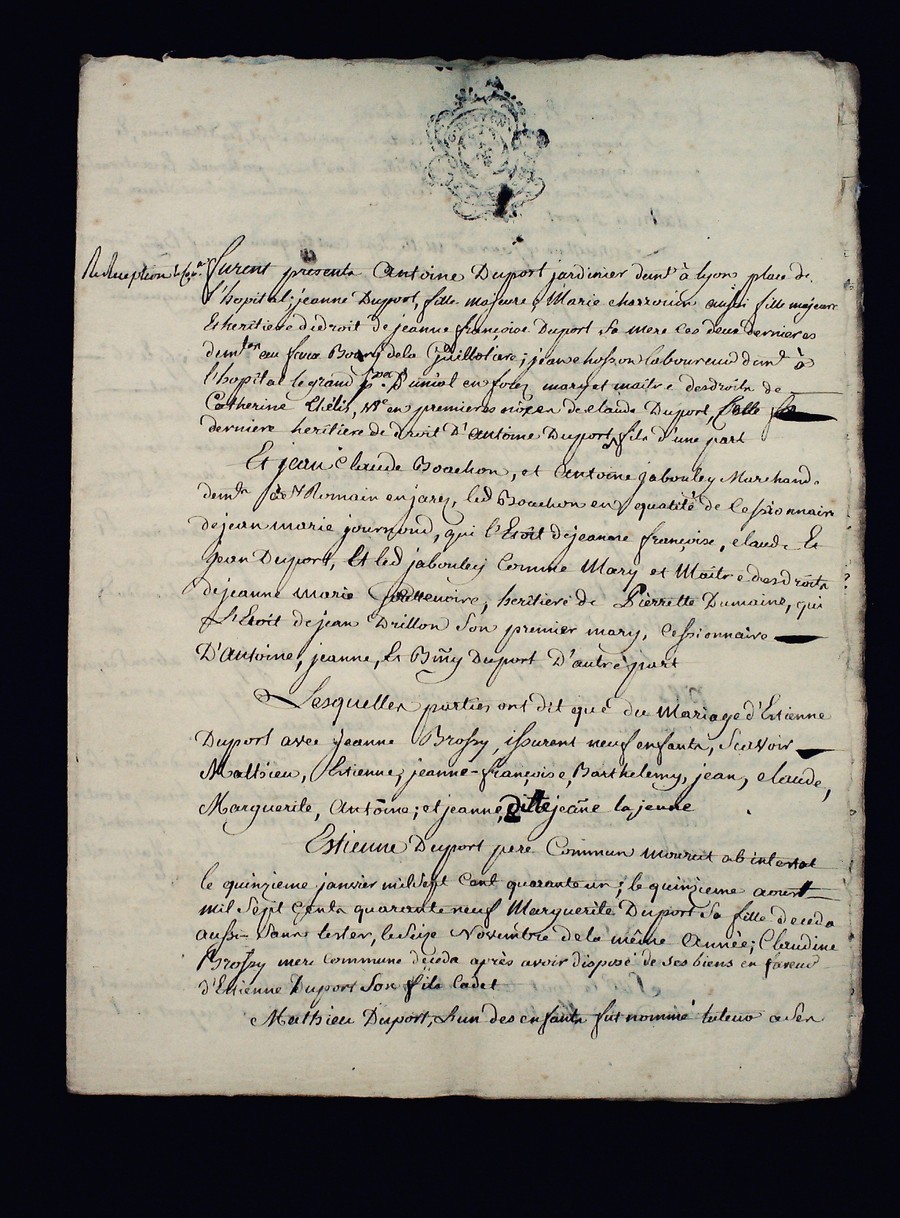 furent presents Antoine Duport jardinier demt à lyon place de
l'hopital; jeanne Duport, fille majeure; Marie aussi fille majeure
Et heritiere de droit de jeanne françoise Duport sa mere ces deux dernieres
demtes au faux Bourg dela Guillotiere; jean hosson laboureur demt à
l'hopital le grand en forez mary et maitre des droits de
Catherine Thélis, Ve en premieres nôces de claude Duport, Celle
derniere heritiere de droit D'antoine Duport fils d'une part
Et jean Claude Bouchon, et Antoine jabouley Marchands
demts à St Romain en jarez, led Bouchon en qualité de Cessionnaire
de jean marie journoud, qui l'Etoit de jeanne françoise, claude Et
jean Duport, Et led jabouley Comme Mary et Maitre des droits
de jeanne marie heritiere de Pierrette Dumaine, qui
L'Etoit de jean Drillon Son premier mary, Cessionnaire
D'antoine, jeanne, Et Bmy Duport D'autre part
Lesquelles parties ont dit que du Mariage d'Estienne
Duport avec jeanne Brossy, issurent neuf enfants, Scavoir
Mathieu, Estienne, jeanne-françoise, Barthelemy, jean, claude,
Marguerite, Antoine; et jeanne, ditte jeañe la jeune
Estienne Duport pere Commun mourut ab intestat
le quinzieme janvier mil Sept Cent quarante un; le quinzieme aoust
mil Sept Cents quarante neuf Marguerite Duport Sa fille deceda
aussi Sans tester, le Seize Novembre de la même Année; Claudine
Brossy mere Commune deceda après avoir disposé de Ses biens en faveur
d'Estienne Duport Son fils Cadet
Mathieu Duport, L'un des enfants fut nommé tuteur a Ses